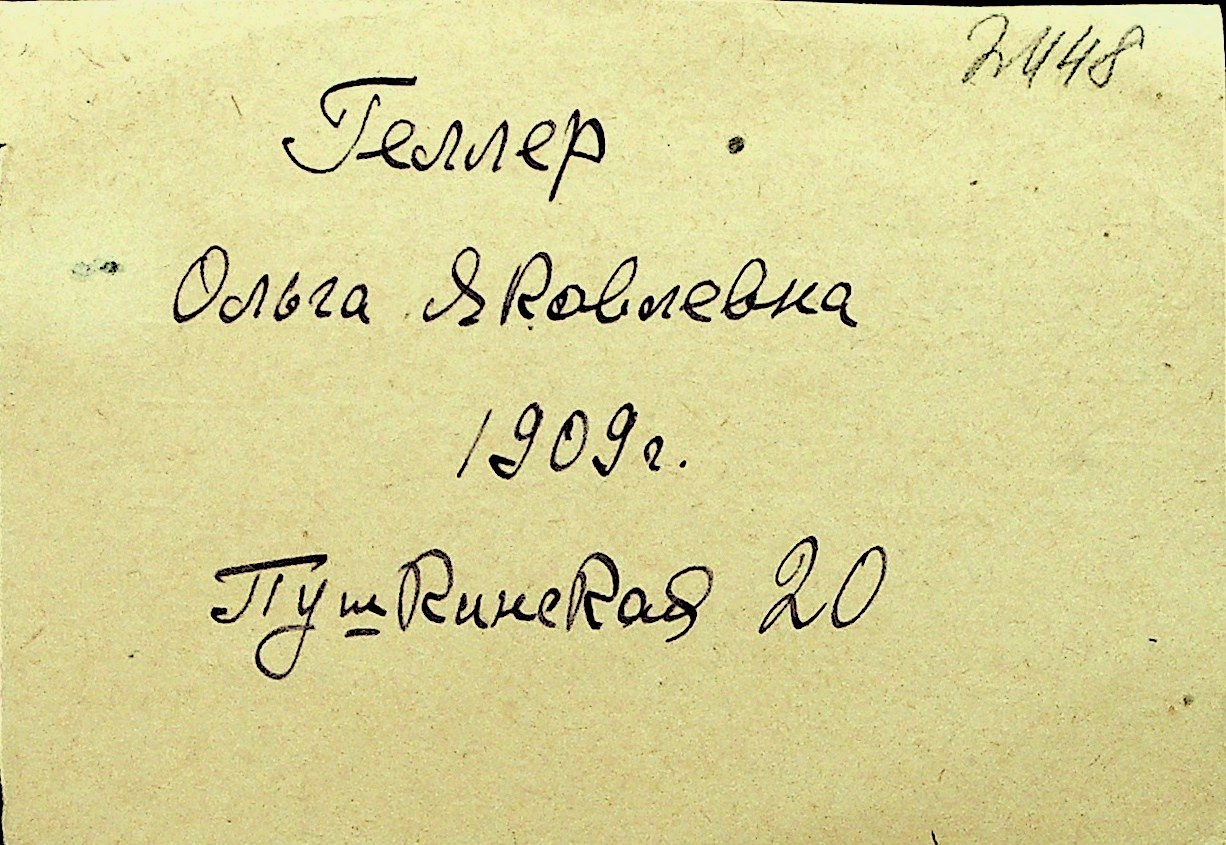 2448
Геллер
Ольга Яковлевна
1909г.
Пушкинская 20